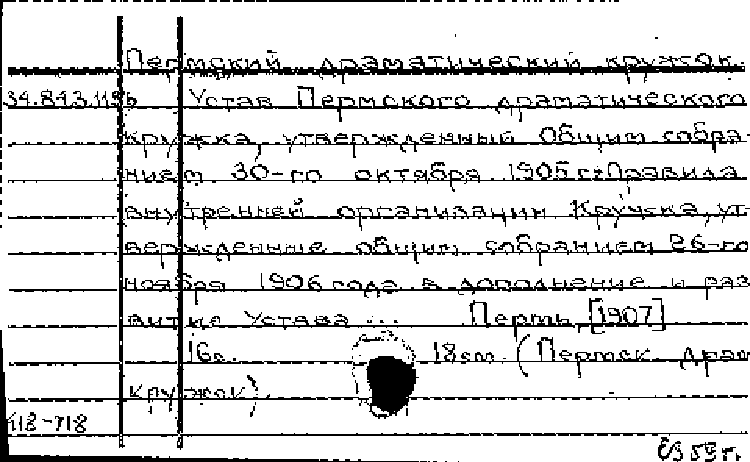 Пермский драматический кружок.
34.843.115б Устав Пермского драматического
кружка, утвержденный Общим собра-
нием 30-го октября 1905 г. Правила
внутренней организации Кружка, ут-
вержденные общим собранием 26-го
ноября 1906 года в дополнение и раз-
витие Устава ... Пермь, [1907]
16с. 18см. (Пермск. драм.
кружок).
118-718
59 г.